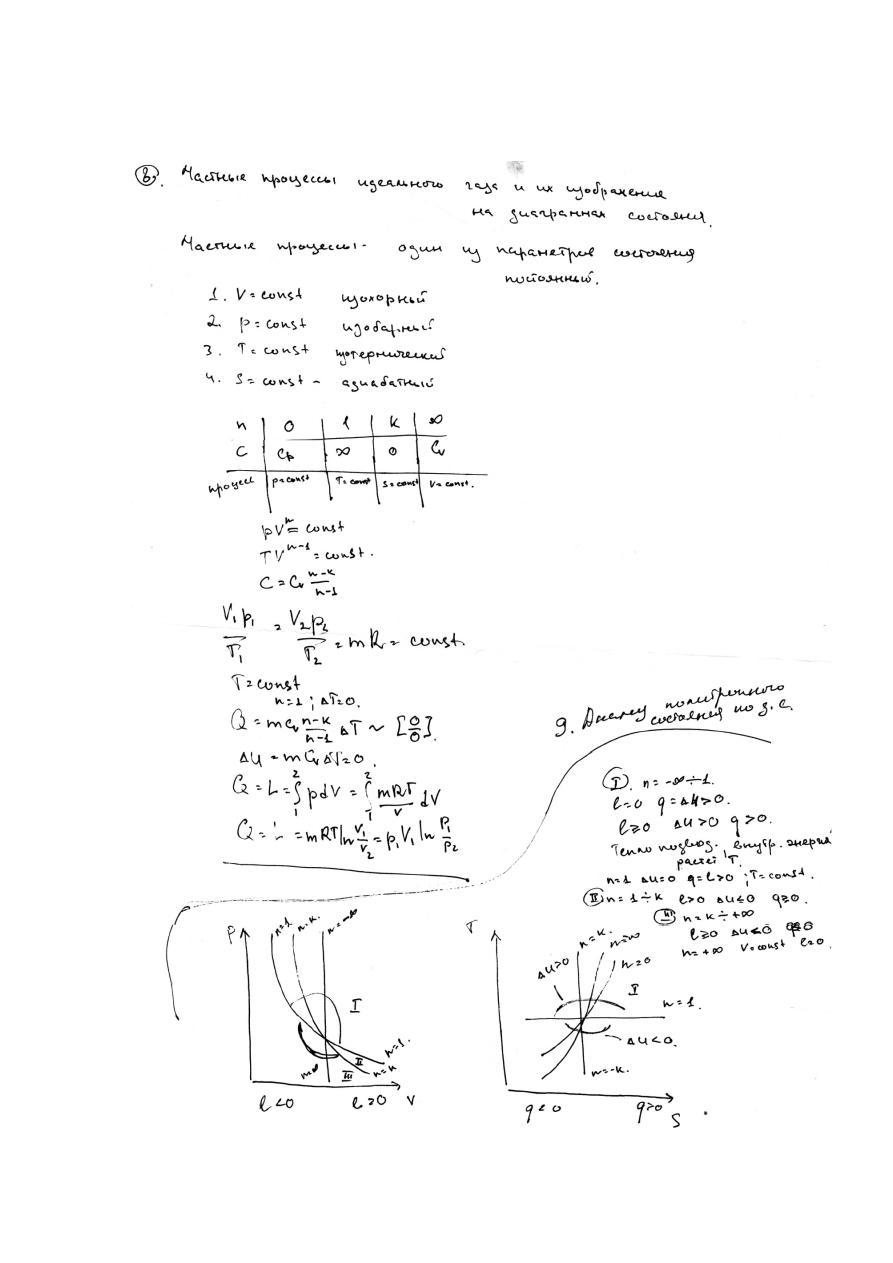 8. Частные процессы идеального газа и их изображения
на диаграммах состояния.
Частные процессы - один из параметров состояния
постоянный.
1. V = const изохорный
2. p = const изобарный
3. T = const изотермический
4. S = const - адиабатный
n 0 1 k ∞
C Cp ∞ 0 Cv
процесс p=const T=const S=const V=const.
pVⁿ = const
TVⁿ⁻¹ = const.
C = Cv (n-k)/(n-1)
V₁p₁/T₁ = V₂p₂/T₂ = mR = const.
T = const
n=1 ; ΔT=0.
Q = mCv (n-k)/(n-1) ΔT ~ [0/0].
ΔU = mCvΔT=0.
Q = L = ∫₁² pdV = ∫₁² mRT/V dV
Q = L = mRT ln V₁/V₂ = p₁V₁ ln P₁/P₂
9. Анализ политропного
состояния
I. n = -∞ ÷ 1.
l=0 q=ΔU>0.
l≥0 ΔU>0 q>0.
Тепло подвод., внутр. энергия
растет T.
n=1 ΔU=0 q=l>0 ; T=const.
II n = 1÷k l>0 ΔU≤0 q≥0.
III n = k ÷ +∞
l≥0 ΔU≤0
n = +∞ V=const l=0.
P n=1 n=k. n=-∞
I
II
III
n=1.
n=k
l<0 l≥0 V
T n=k. n=∞ n=0
ΔU>0
I
n=1.
ΔU<0.
n=-k.
q<0 q>0 S